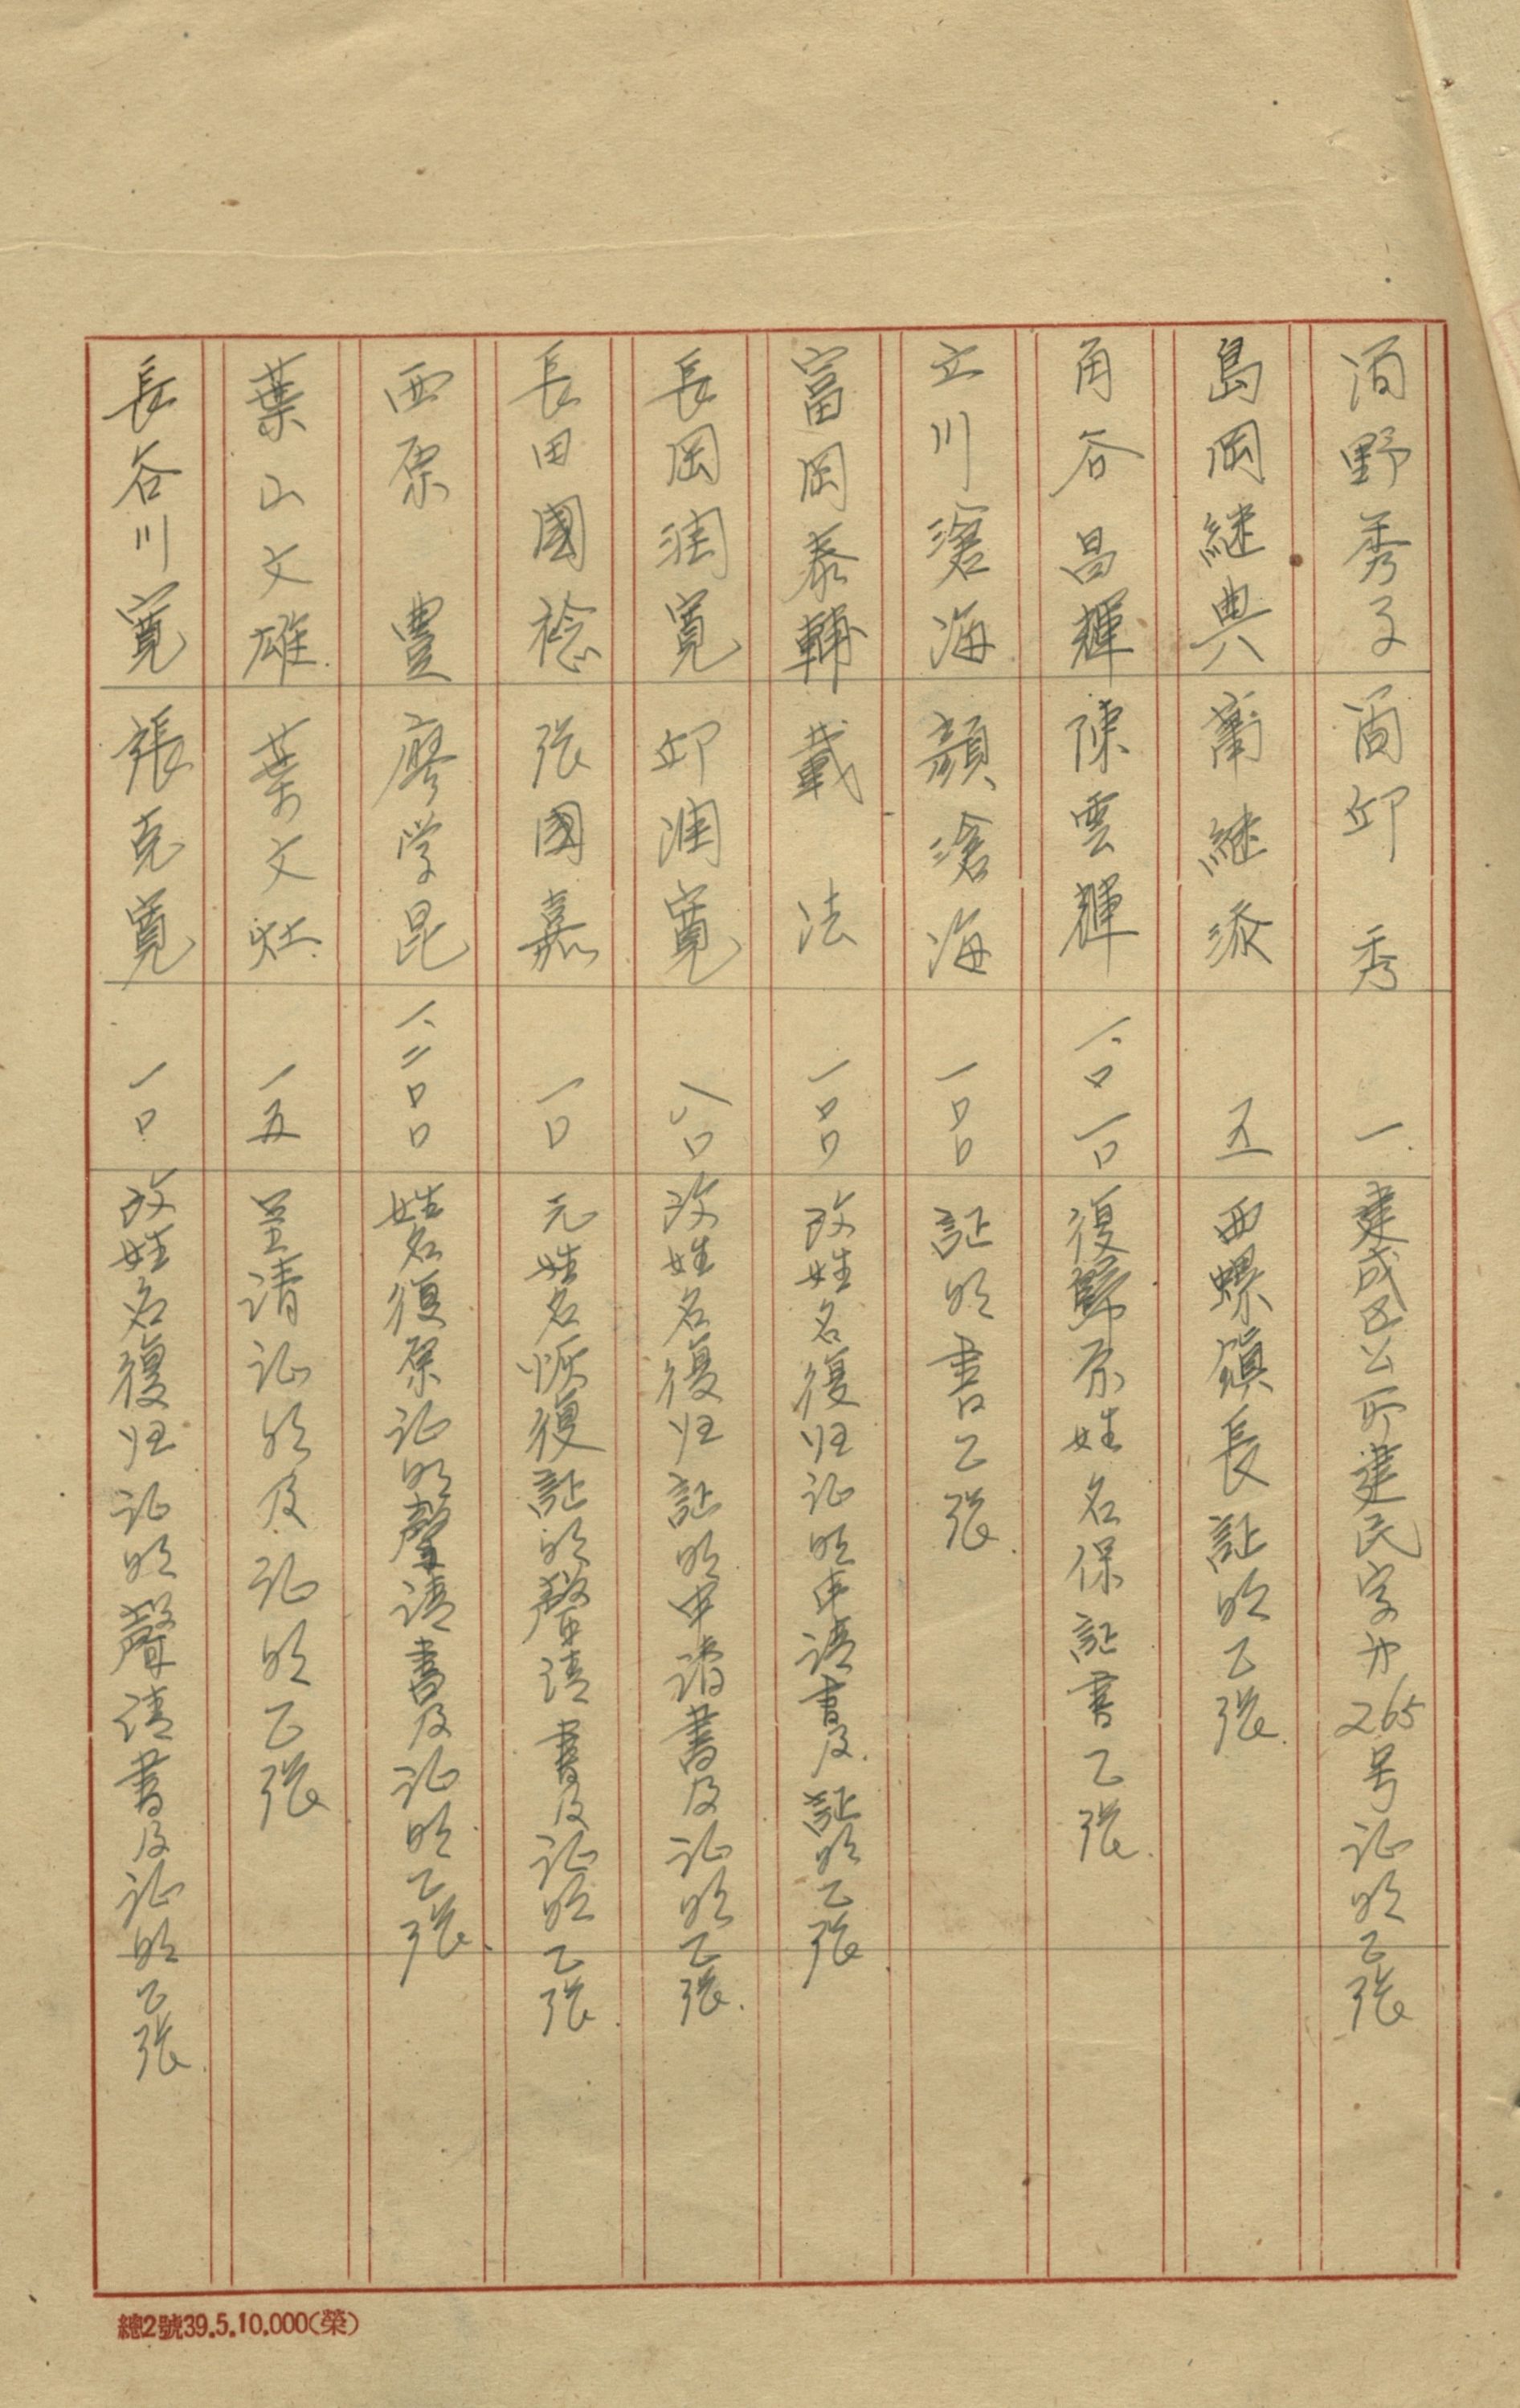 酒野秀子 簡邱秀 一 建成区公所建民字才265号証明乙張
島岡継典 蕭継添 五 西螺鎮長証明乙張
角谷昌輝 陳雲輝 一、〇一〇 復歸原姓名保証書乙張
立川滄海 顏滄海 一〇〇 証明書乙張
富岡泰輔 戴法 一〇〇 改姓名復归証明申請書及証明乙張
長岡潤寬 邱潤寬 八〇 改姓名復归証明申請書及証明乙張
長田國稔 張國嘉 一〇 元姓名恢復証明聲請書及証明乙張
西原豊 廖学昆 一、二〇〇 姓名復原証明聲請書及証明乙張
葉山文雄 葉文灶 一五 呈請証明及証明乙張
長谷川寬 張克寬 一〇 改姓名復归証明聲請書及証明乙張
總2號39.5.10.000(榮)